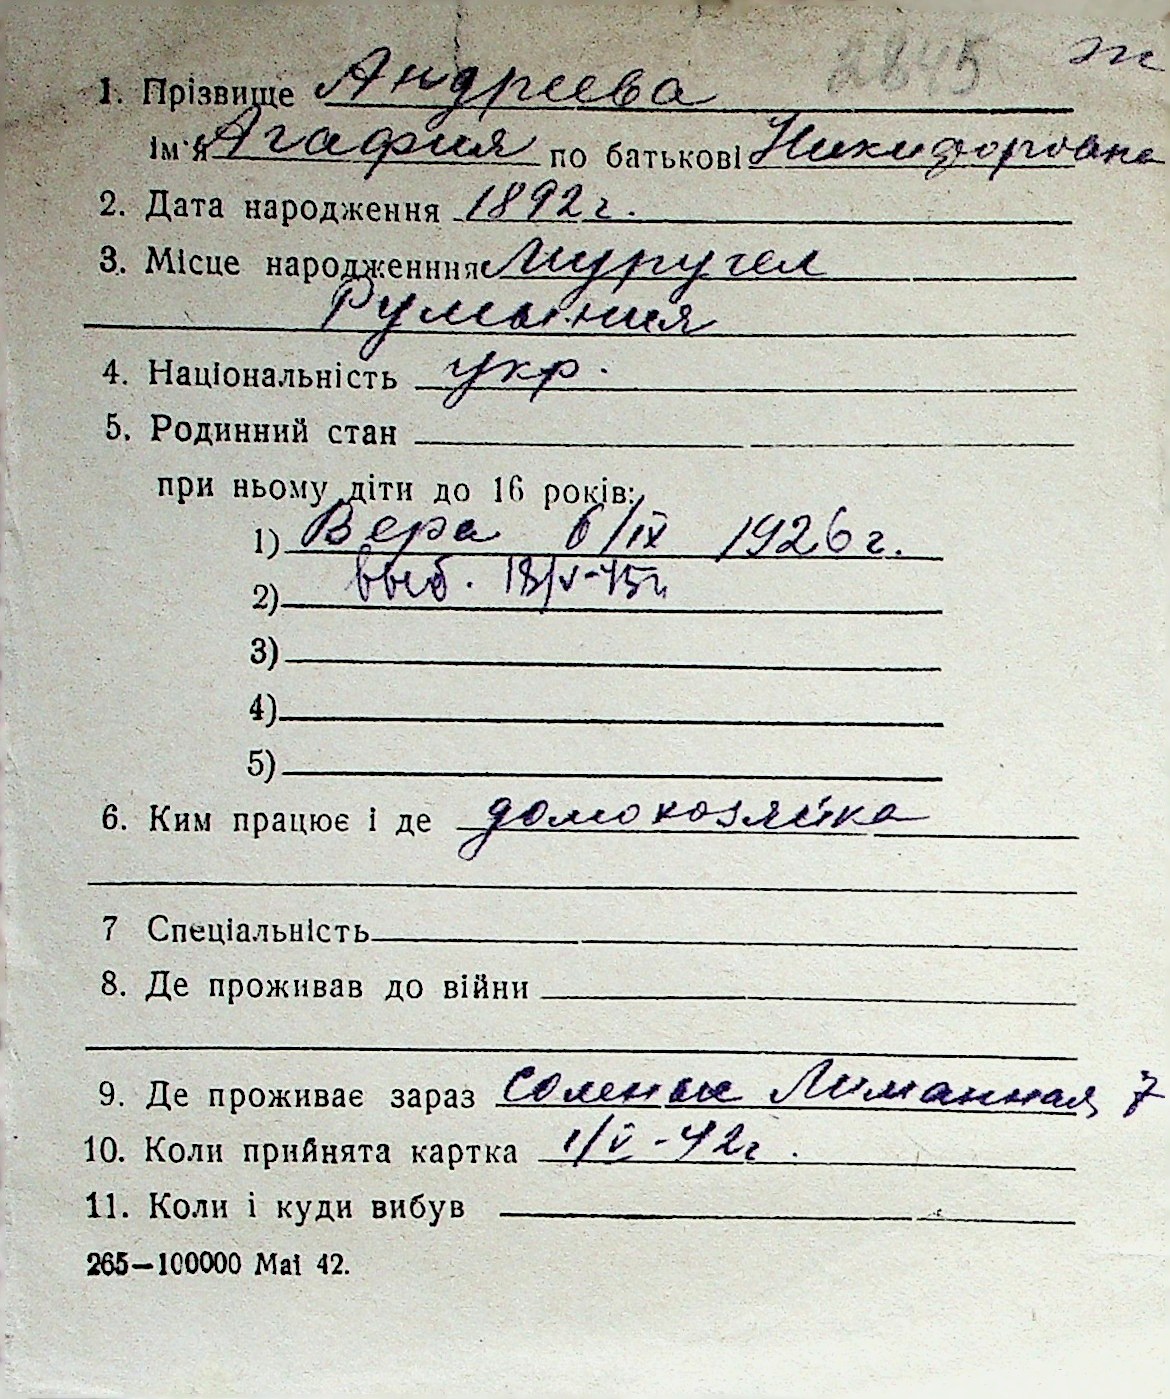 2845 ж
1. Прізвище Андреева
Ім'я Агафия по батькові Никифоровна
2. Дата народження 1892 г.
3. Місце народженння Муругел
Румыния
4. Національність укр.
5. Родинний стан
при ньому діти до 16 років:
1) Вера 6/IX 1926 г.
2) выб. 18/V-45г
3)
4)
5)
6. Ким працює і де домохозяйка
7 Спеціальність
8. Де проживав до війни
9. Де проживає зараз Соленые Лиманная 7
10. Коли прийнята картка 1/V-42г.
11. Коли і куди вибув
265—100000 Маі 42.